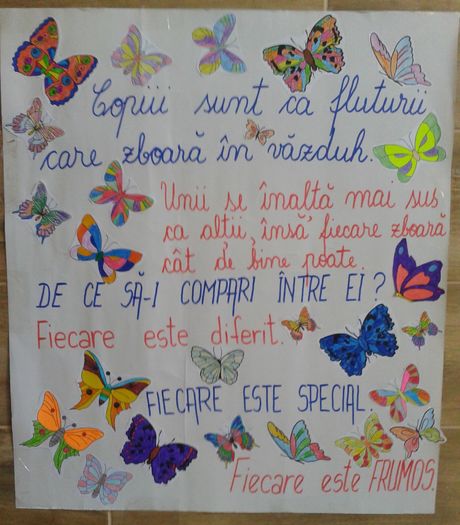 Copiii sunt ca fluturii
care zboară în văzduh.
Unii se înaltă mai sus
ca altii, însă fiecare zboară
cât de bine poate.
DE CE SĂ-I COMPARI ÎNTRE EI?
Fiecare este diferit.
FIECARE ESTE SPECIAL.
Fiecare este FRUMOS.